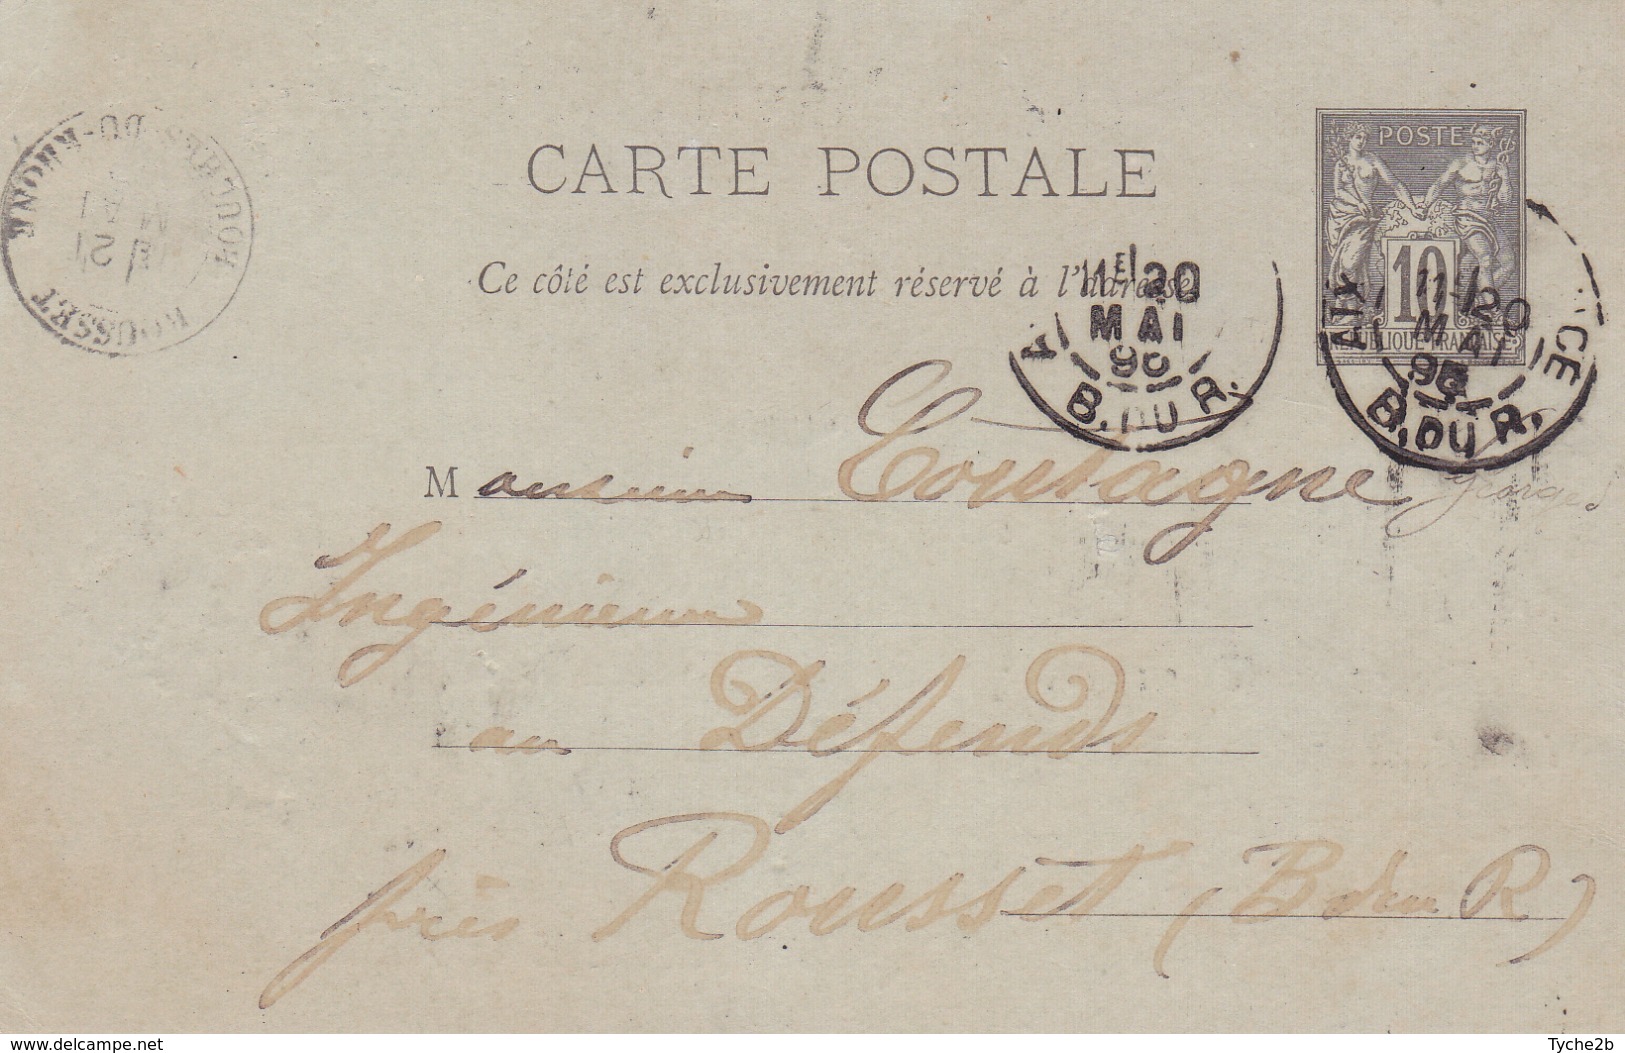 POSTE
10
REPUBLIQUE FRANÇAISE
CARTE POSTALE
Ce côté est exclusivement réservé à l'adresse.
BOUCHES-DU-RHONE
ROUSSET
21
MAI
11E 20
MAI
90
B. DU R.
AIX
20
MAI
90
B. DU R.
Monsieur Coutagne Georges
Ingénieur
au Défends
près Rousset (B du R)
www.delcampe.net
Tyche2b